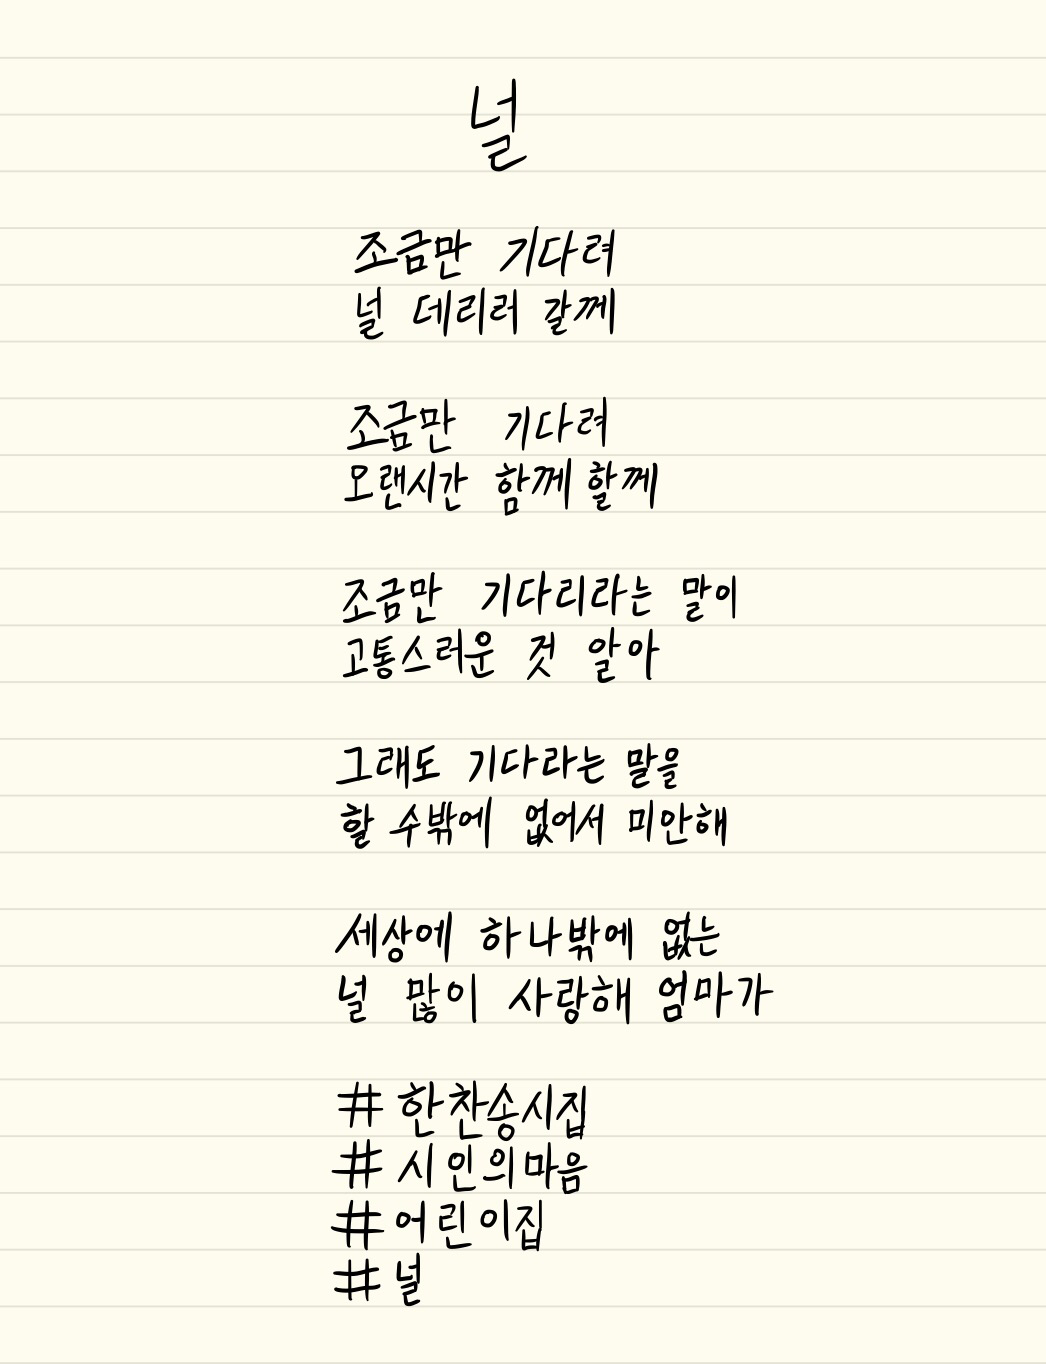 널
조금만 기다려
널 데리러 갈께
조금만 기다려
오랜시간 함께 할께
조금만 기다리라는 말이
고통스러운 것 알아
그래도 기다라는 말을
할 수밖에 없어서 미안해
세상에 하나밖에 없는
널 많이 사랑해 엄마가
# 한찬송시집
# 시인의마음
# 어린이집
# 널